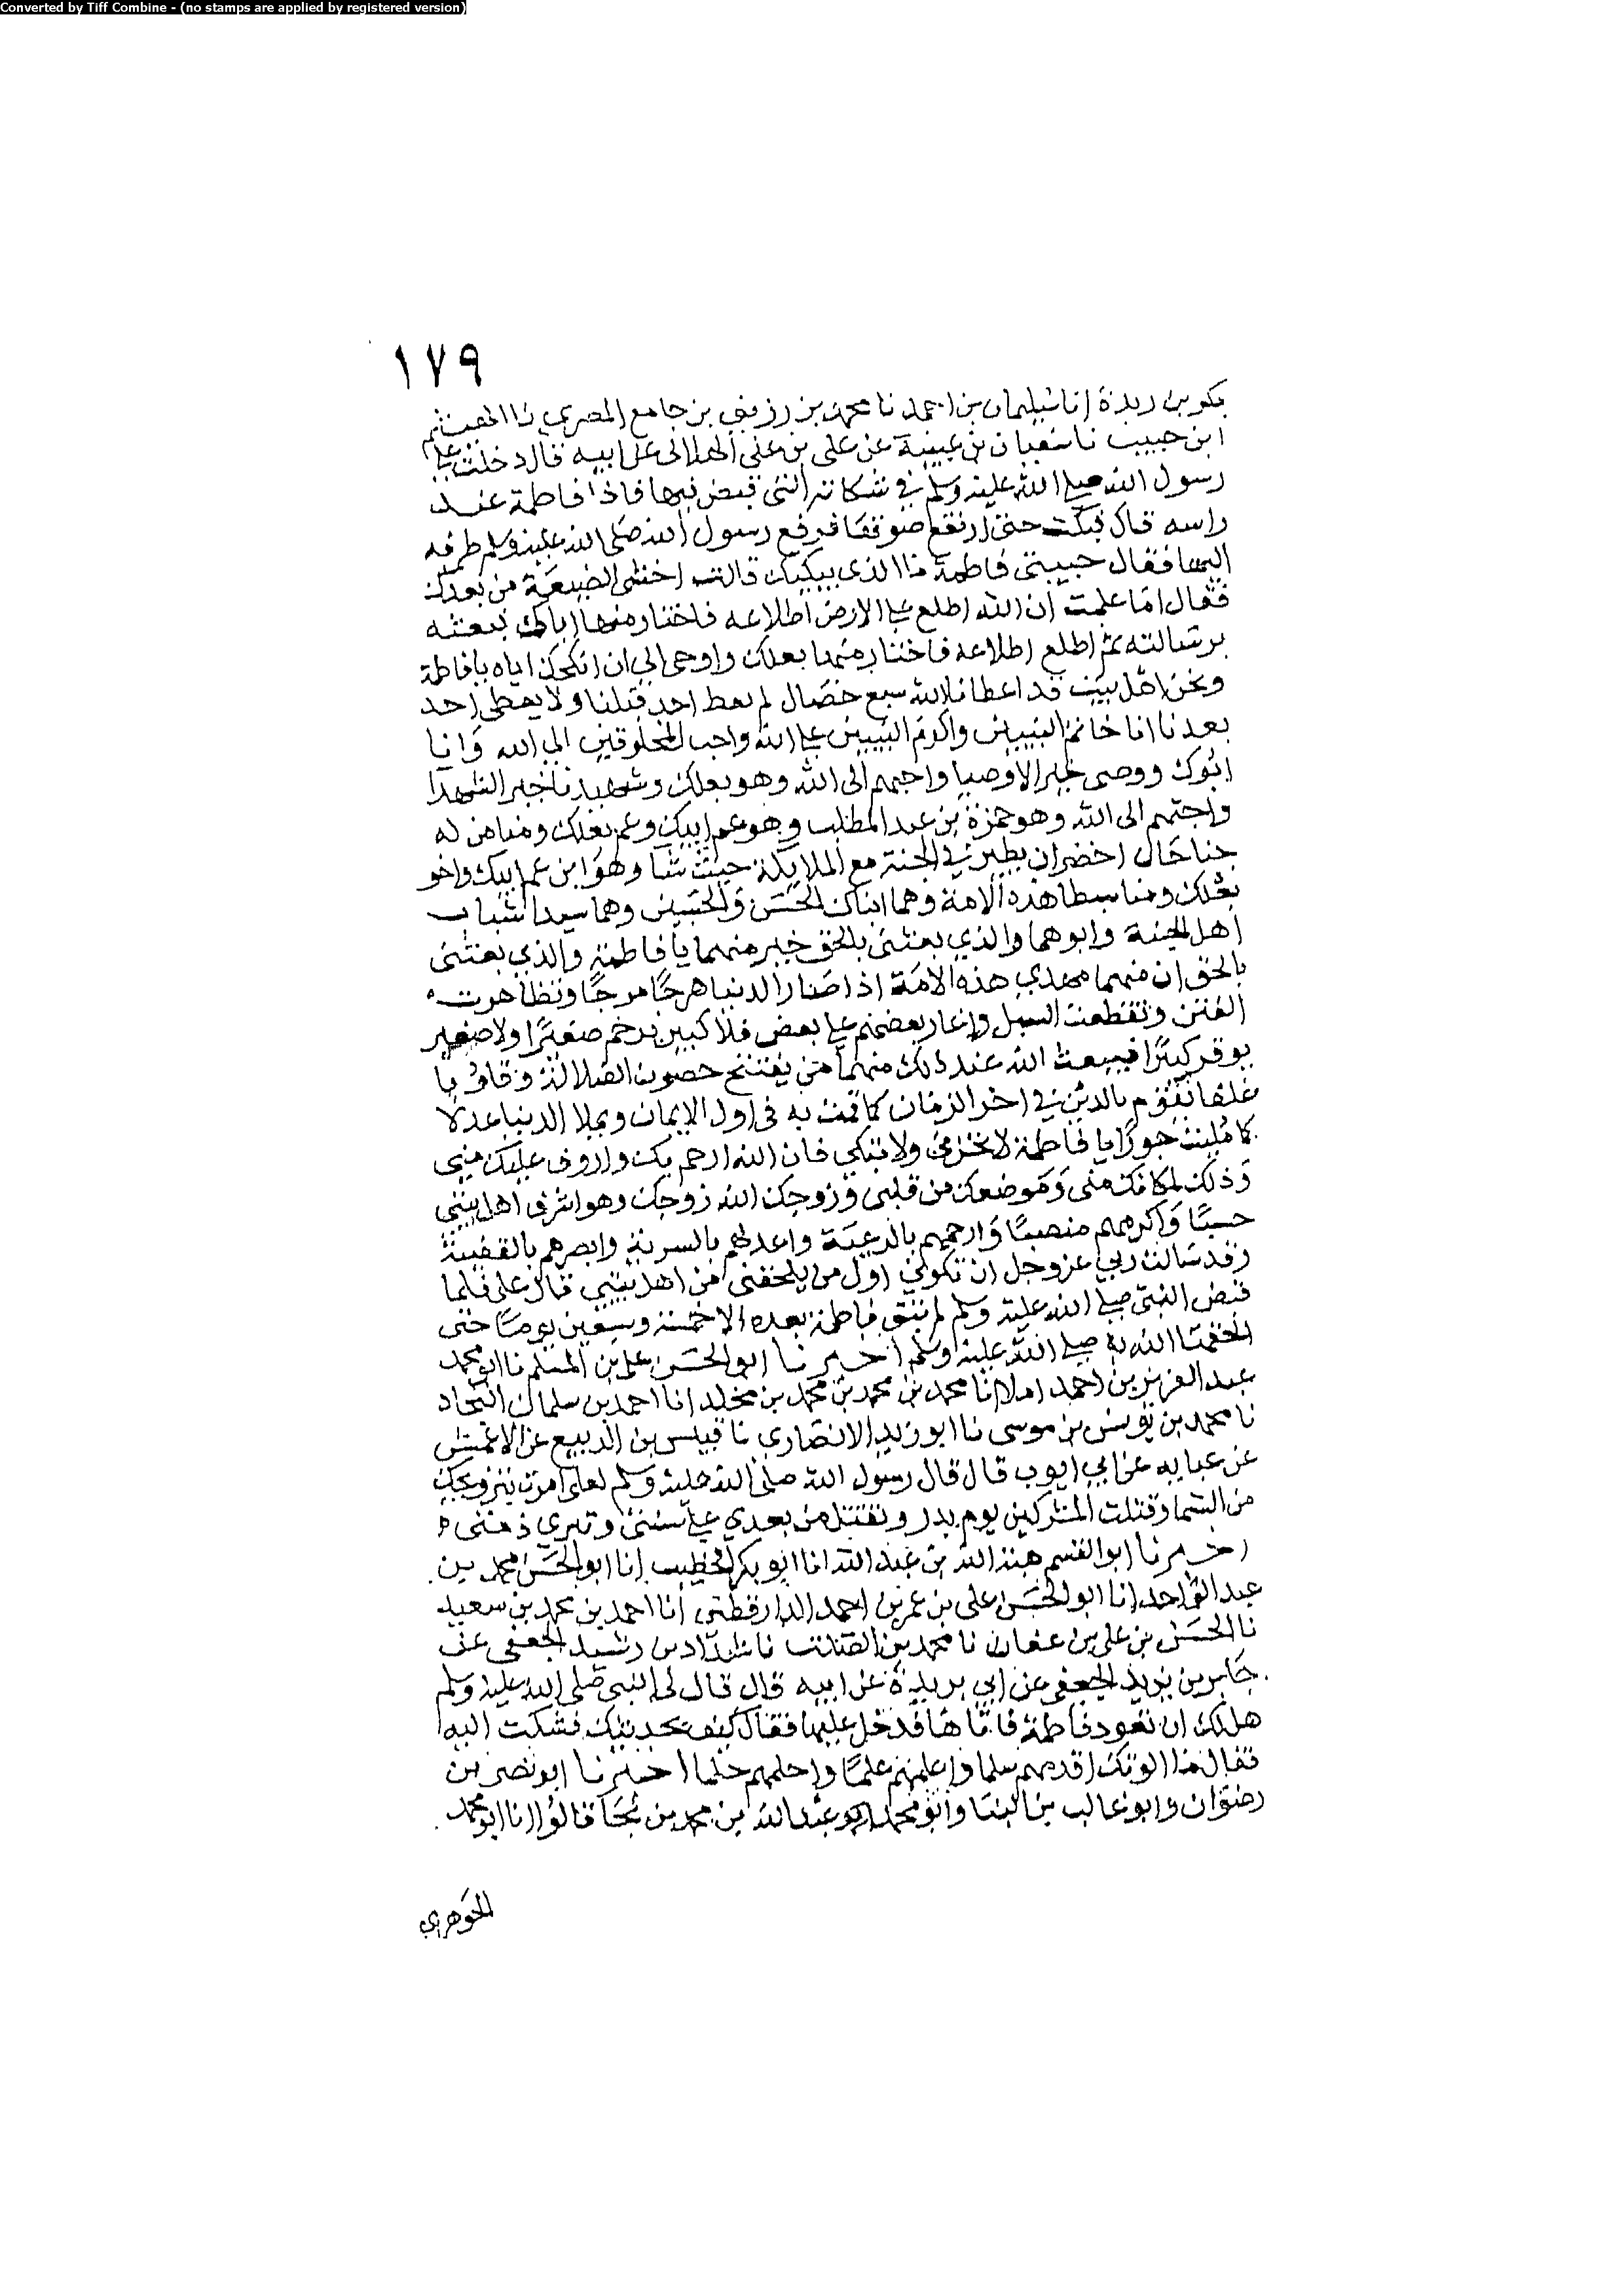 Converted by Tiff Combine - (no stamps are applied by registered version)
١٧٩
بكر بن ريذة انا سليمان بن احمد نا محمد بن رزيق بن جامع المصري نا الهيثم
ابن حبيب نا سفيان بن عيينة عن علي بن علي الهلالي عن ابيه قال دخلت علي
رسول الله صلي الله عليه وسلم في شكاته التي قبض فيها فاذا فاطمة عند
راسه قال فبكت حتى ارتفع صوتها فرفع رسول الله صلى الله عليه وسلم طرفه
اليها فقال حبيبتي فاطمة ما الذي يبكيك قالت اخشى الضيعة من بعدك
فقال اما علمت ان الله اطلع علي الارض اطلاعه فاختار منها اباك فبعثه
برسالته ثم اطلع اطلاعه فاختار منها بعلك واوحى الي ان انكحك اياه يا فاطمة
ونحن اهل بيت قد اعطانا الله سبع خصال لم يعط احد قبلنا ولا يعطى احد
بعدنا انا خاتم النبيين واكرم النبيين علي الله واحب المخلوقين الي الله وانا
ابوك ووصي خير الاوصيا واحبهم الى الله وهو بعلك وشهيدنا خير الشهدا
واحبهم الى الله وهو حمزة بن عبد المطلب وهو عم ابيك وعم بعلك ومنا من له
جناحان اخضران يطير في الجنة مع الملايكة حيث شا وهو ابن عم ابيك واخو
بعلك ومنا سبطا هذه الامة وهما ابناك الحسن والحسين وهما سيدا شباب
اهل الجنة وابوهما والذي بعثني بالحق خير منهما يا فاطمة والذي بعثني
بالحق ان منهما مهدي هذه الامة اذا صار الدنيا هرجا مرجا وتظاهرت
الفتن وتقطعت السبل واغار بعضهم علي بعض فلا كبير يرحم صغيرا ولا صغير
يوقر كبيرا فيبعث الله عند ذلك منهما من يفتتح حصون الضلالة وقلوبا
غلفا يقوم بالدين في اخر الزمان كما قمت به في اول الايمان ويملا الدنيا عدلا
كما مليت جورا يا فاطمة لا تحزني ولا تبكي فان الله ارحم بك واروف عليك مني
وذلك لمكانك مني وموضعك من قلبي وزوجك الله زوجك وهو اشرف اهل بيتي
حسبا واكرمهم منصبا وارحمهم بالرعية واعدلهم بالسوية وابصرهم بالقضية
وقد سالت ربي عز وجل ان تكوني اول من يلحقني من اهل بيتي قال علي فلما
قبض النبي صلي الله عليه وسلم لم تبق فاطمة بعده الا خمسة وسبعين يوما حتى
الحقها الله به صلي الله عليه وسلم اخبرنا ابو الحسن علي بن المسلم نا ابو محمد
عبد العزيز بن احمد املا انا محمد بن محمد بن محمد بن مخلد انا احمد بن سلمان النجاد
نا محمد بن يونس بن موسى نا ابو زيد الانصاري نا قيس بن الربيع عن الاعمش
عن عبايه عن ابي ايوب قال قال رسول الله صلى الله عليه وسلم لعلي امرت بتزويجك
من السما وقتلت المشركين يوم بدر وتقتل من بعدي علي سنتي وتبري ذمتي
اخبرنا ابو القسم هبة الله بن عبد الله انا ابو بكر الخطيب انا ابو الحسن محمد بن
عبد الواحد انا ابو الحسن علي بن عمر بن احمد الدارقطني انا احمد بن محمد بن سعيد
نا الحسن بن علي بن عفان نا محمد بن الصلت نا شداد بن رشيد الجعفي عن
جابر بن يزيد الجعفي عن ابي بريدة عن ابيه قال قال لي النبي صلى الله عليه وسلم
هل لك ان نعود فاطمة فاتاها فدخل عليها فقال كيف تجدينك فشكت اليه
فقال ما الوتك اقدمهم سلما واعلمهم علما واحلمهم حلما اخبرنا ابو نصر بن
رضوان وابو غالب بن البنا وابو محمد عبد الله بن محمد بن نجا قالوا انا ابو محمد
الجوهري